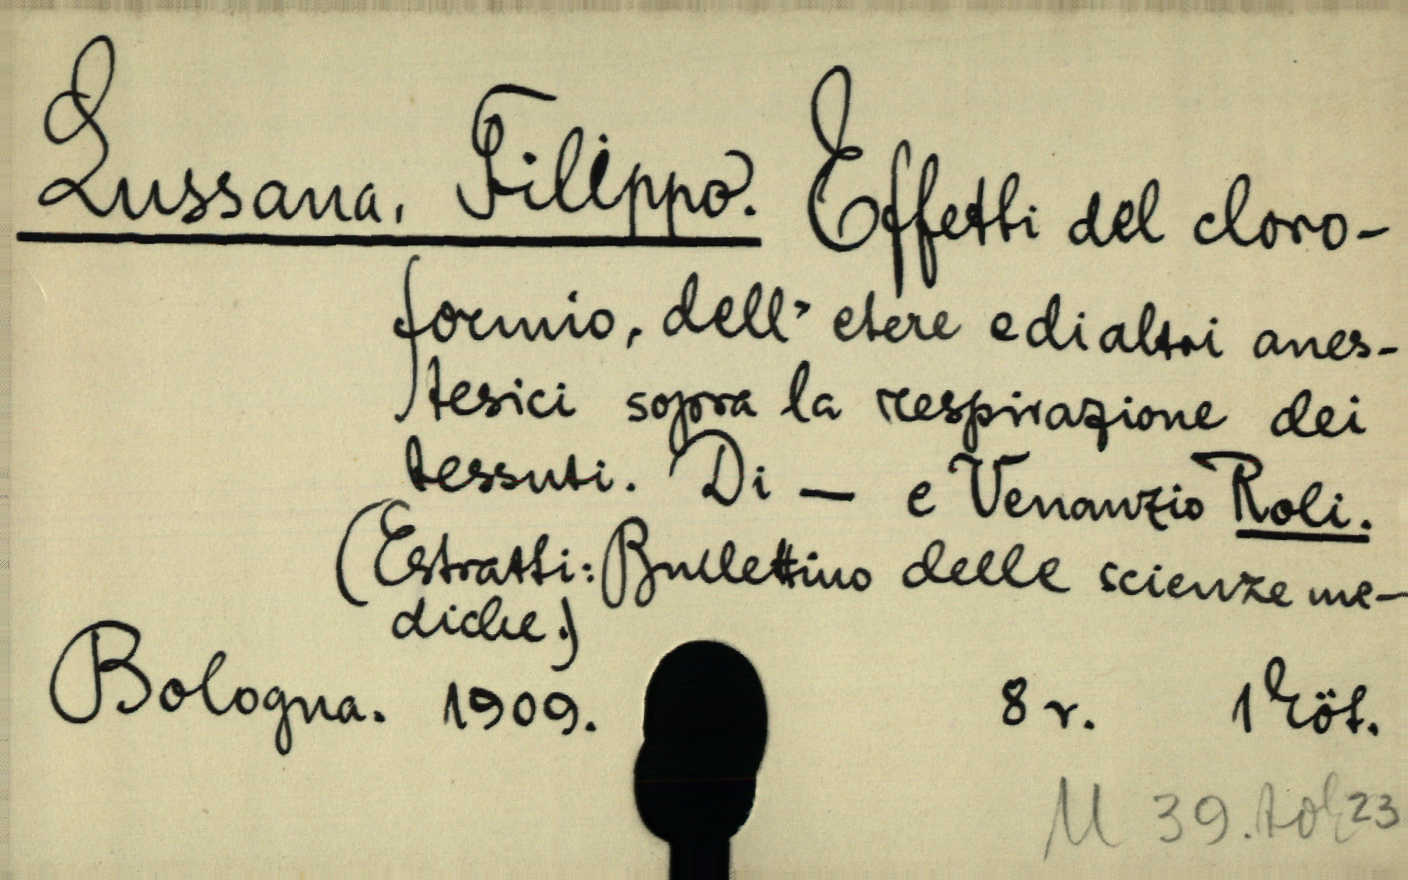 Lussana, Filippo. Effetti del cloro-
formio, dell' etere edialtri anes-
tesici sopra la respirazione dei
tessuti. Di — e Venanzio Roli.
(Estratti: Bullettino delle scienze me-
diche.)
Bologna. 1909. 8 r. 1 köt.
M 39. 23